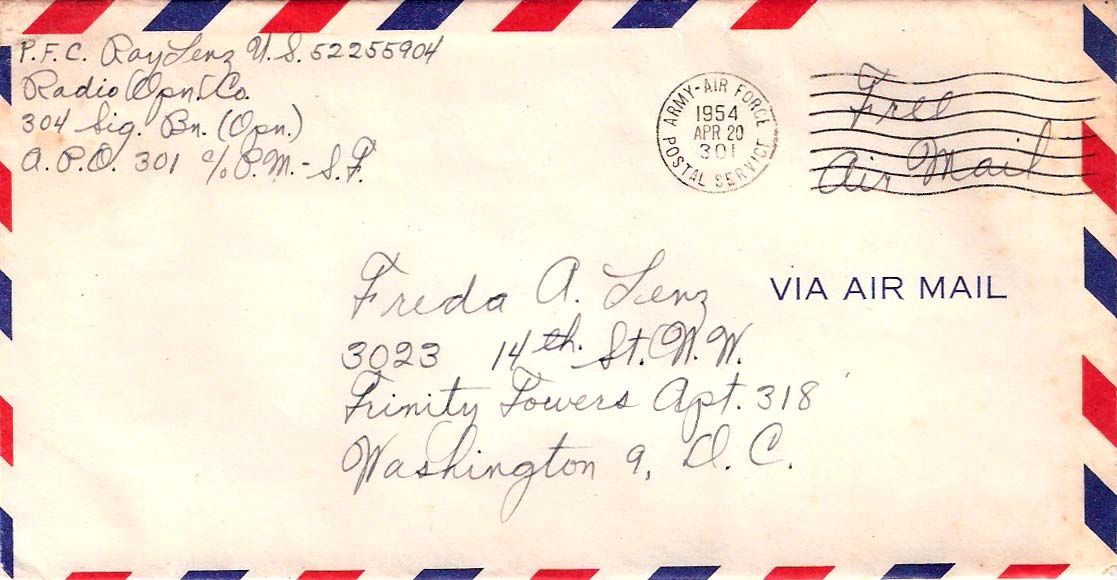 P.F.C. Ray Lenz U.S. 52255904
Radio Opn. Co.
304 Sig. Bn. (Opn.)
A.P.O. 301 c/o P.M. - S.F.
ARMY-AIR FORCE
1954
APR 20
301
POSTAL SERVICE
Free
Air Mail
VIA AIR MAIL
Freda A. Lenz
3023 14th. St. N.W.
Trinity Towers Apt. 318
Washington 9, D.C.